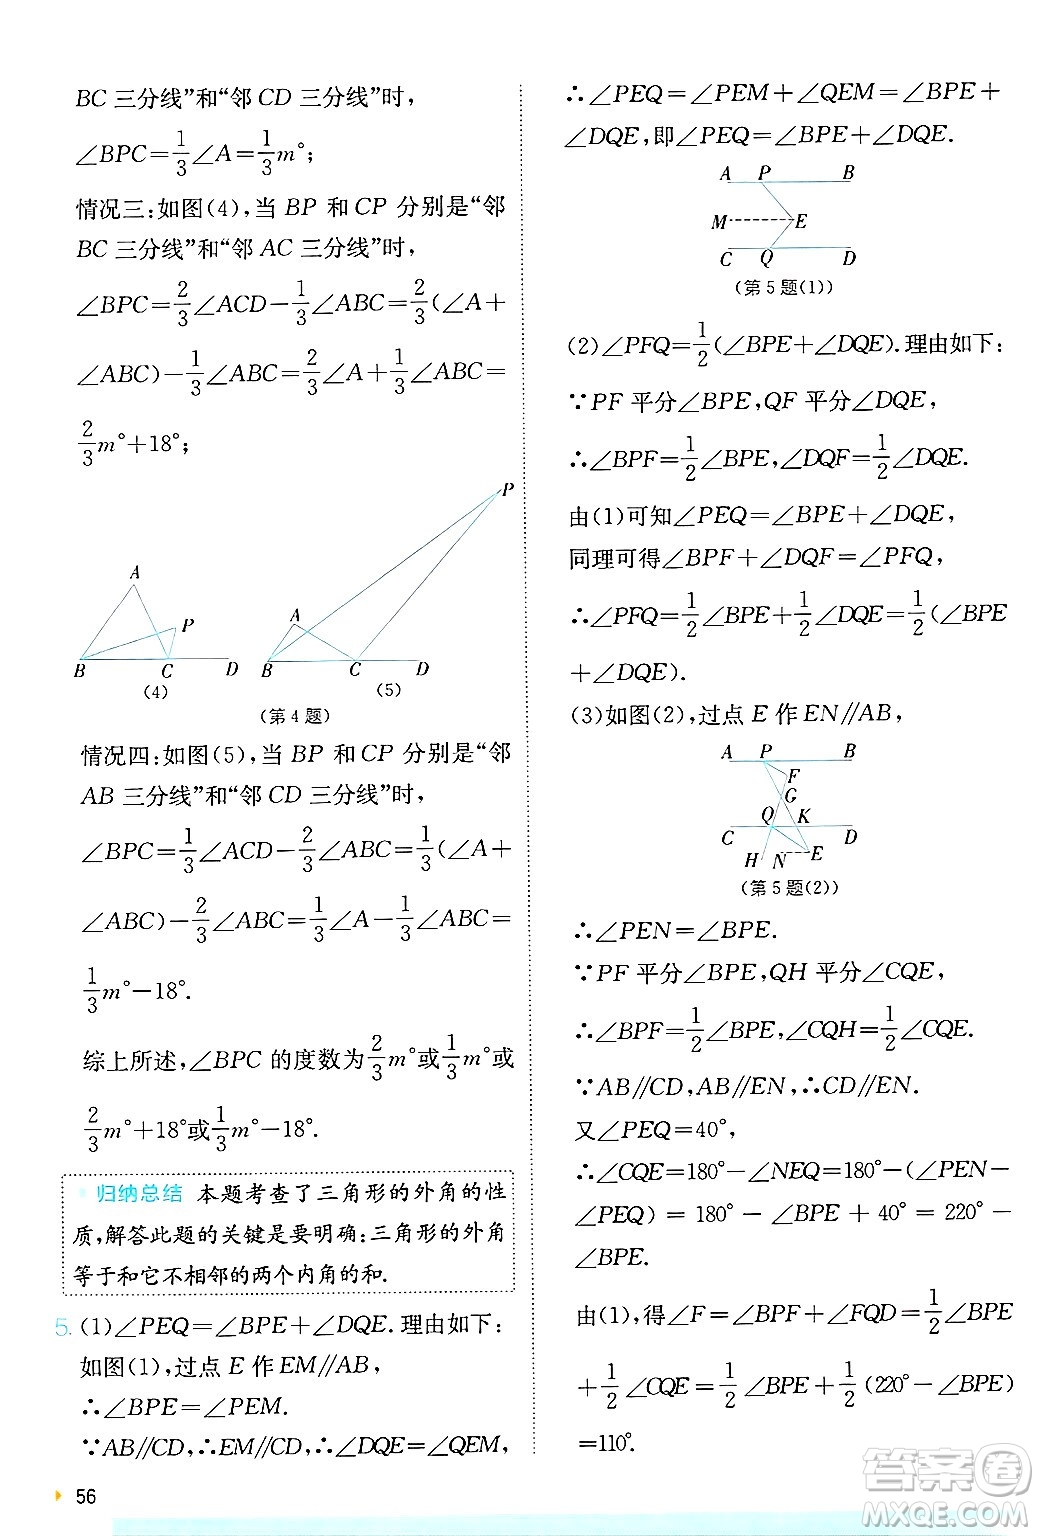 BC 三分线”和“邻 CD 三分线”时，
∠BPC=1/3∠A=1/3m°；
情况三：如图(4)，当 BP 和 CP 分别是“邻
BC 三分线”和“邻 AC 三分线”时，
∠BPC=2/3∠ACD−1/3∠ABC=2/3(∠A+
∠ABC)−1/3∠ABC=2/3∠A+1/3∠ABC=
2/3m°+18°；
A
P
B C D
(4)
P
A
B C D
(5)
(第 4 题)
情况四：如图(5)，当 BP 和 CP 分别是“邻
AB 三分线”和“邻 CD 三分线”时，
∠BPC=1/3∠ACD−2/3∠ABC=1/3(∠A+
∠ABC)−2/3∠ABC=1/3∠A−1/3∠ABC=
1/3m°−18°.
综上所述，∠BPC 的度数为2/3m°或1/3m°或
2/3m°+18°或1/3m°−18°.
归纳总结 本题考查了三角形的外角的性
质，解答此题的关键是要明确：三角形的外角
等于和它不相邻的两个内角的和.
5. (1)∠PEQ=∠BPE+∠DQE.理由如下：
如图(1)，过点 E 作 EM∥AB，
∴∠BPE=∠PEM.
∵AB∥CD，∴EM∥CD，∴∠DQE=∠QEM，
56
∴∠PEQ=∠PEM+∠QEM=∠BPE+
∠DQE，即∠PEQ=∠BPE+∠DQE.
A P B
M E
C Q D
(第 5 题(1))
(2)∠PFQ=1/2(∠BPE+∠DQE).理由如下：
∵PF 平分∠BPE，QF 平分∠DQE，
∴∠BPF=1/2∠BPE，∠DQF=1/2∠DQE.
由(1)可知∠PEQ=∠BPE+∠DQE，
同理可得∠BPF+∠DQF=∠PFQ，
∴∠PFQ=1/2∠BPE+1/2∠DQE=1/2(∠BPE
+∠DQE).
(3)如图(2)，过点 E 作 EN∥AB，
A P B
F
G
Q K
C D
H N E
(第 5 题(2))
∴∠PEN=∠BPE.
∵PF 平分∠BPE，QH 平分∠CQE，
∴∠BPF=1/2∠BPE，∠CQH=1/2∠CQE.
∵AB∥CD，AB∥EN，∴CD∥EN.
又∠PEQ=40°，
∴∠CQE=180°−∠NEQ=180°−(∠PEN−
∠PEQ)=180°−∠BPE+40°=220°−
∠BPE.
由(1)，得∠F=∠BPF+∠FQD=1/2∠BPE
+1/2∠CQE=1/2∠BPE+1/2(220°−∠BPE)
=110°.
答案圈
MXQE.COM